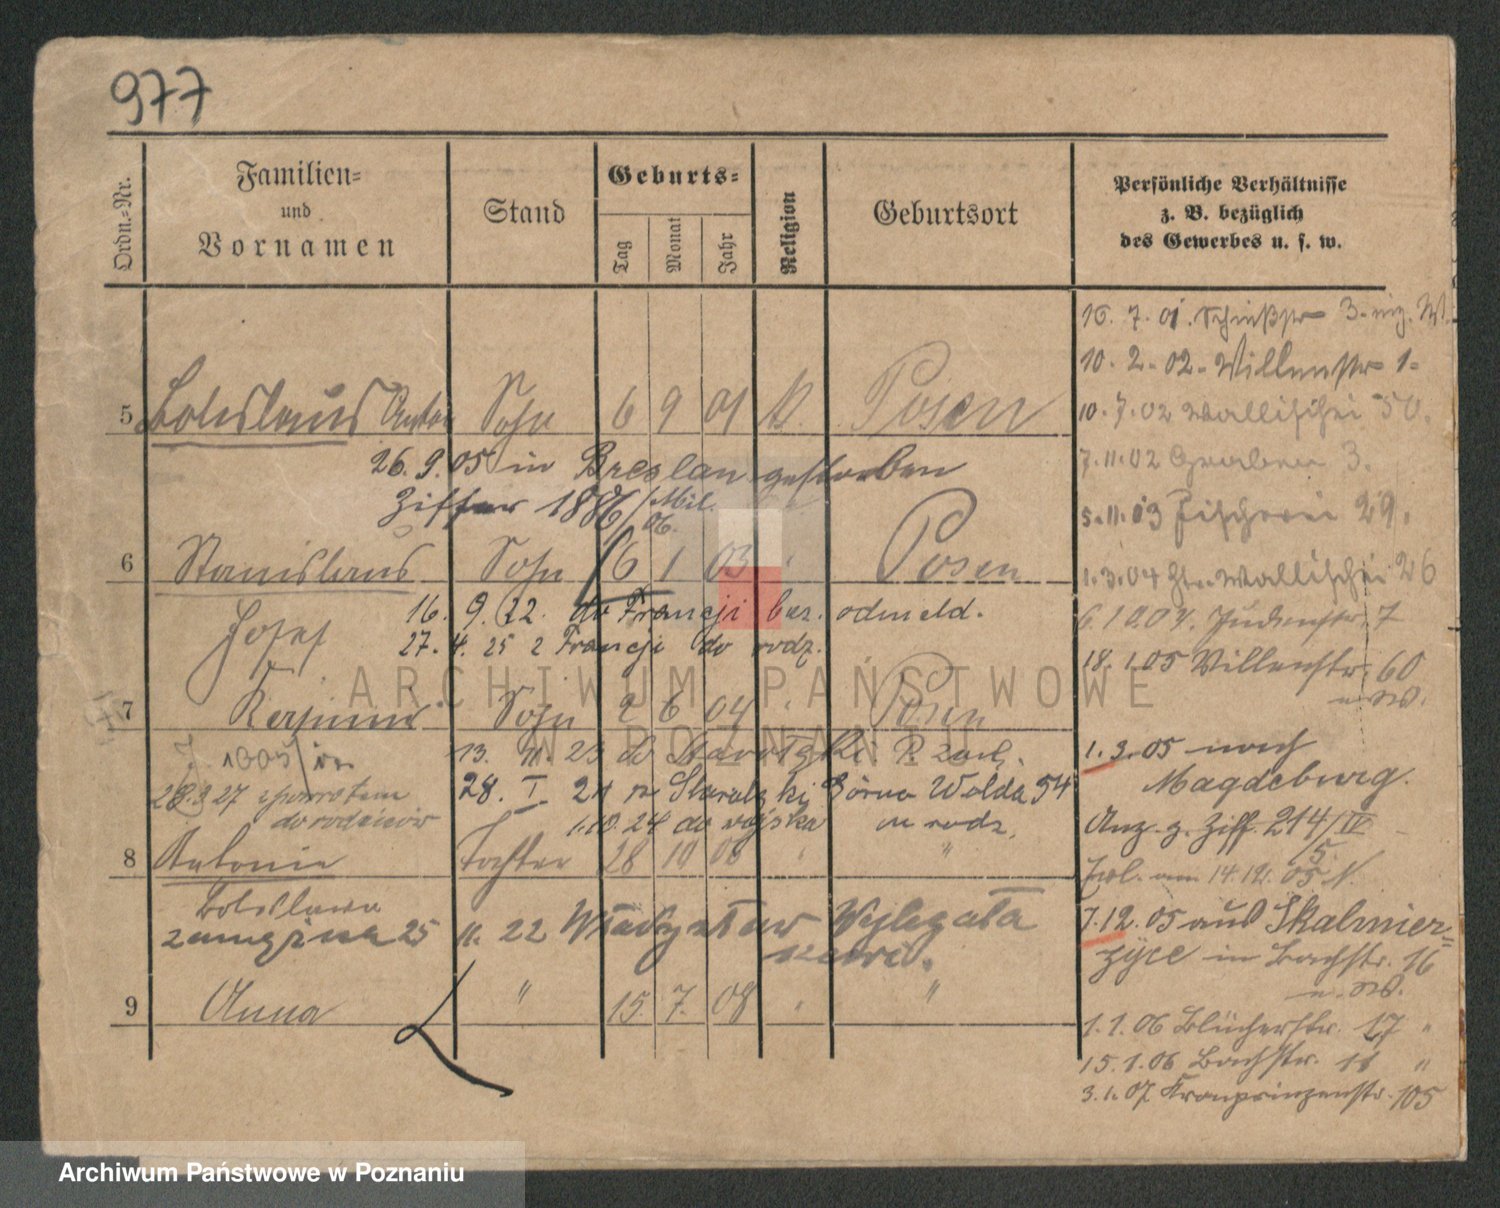 977
Ordn.=Nr.
Familien=
und
Vornamen
Stand
Geburts=
Tag
Monat
Jahr
Religion
Geburtsort
Persönliche Verhältnisse
z. B. bezüglich
des Gewerbes u. s. w.
5 Boleslaus Anton Sohn 6 9 01 k. Posen
26. 9. 05 in Breslau gestorben
Ziffer 1886/Mil.
06.
6 Stanislaus Sohn 6 1 03 " Posen
Josef
16. 9. 22. do Francji bez. odmeld.
27. 4. 25 z Francji do rodz.
7 Sohn 2 6 04 " Posen
13. 11. 23 do
28. I 24 Górna Wilda 54
28.3.27 zpowrotem
do rodziców
1.10.24 do wojska
8 Antonie Tochter 28 10 06 " "
Boleslawa
zamężna 25 11. 22 Władysław Wylegała
9 Anna " 15. 7. 08 " "
16. 7. 01. Schießstr 3.
10. 2. 02. Willenstr 1.
10. 7. 02 Wallischei 50.
7. 11. 02 Graben 3.
5. 11. 03 Fischerei 29.
1. 3. 04 Wallischei 26
6. 10. 04. Judenstr. 7
18. 1. 05 Villenstr. 60
1. 3. 05 nach
Magdeburg.
Anz. z. Ziff. 214/IV
5.
14. 12. 05
7.12.05 aus Skalmier=
zyce in Bachstr. 16
1. 1. 06 Blücherstr. 17 "
15. 1. 06 Bachstr. 16 "
3. 1. 07 Kronprinzenstr. 105
ARCHIWUM PAŃSTWOWE
W POZNANIU
Archiwum Państwowe w Poznaniu